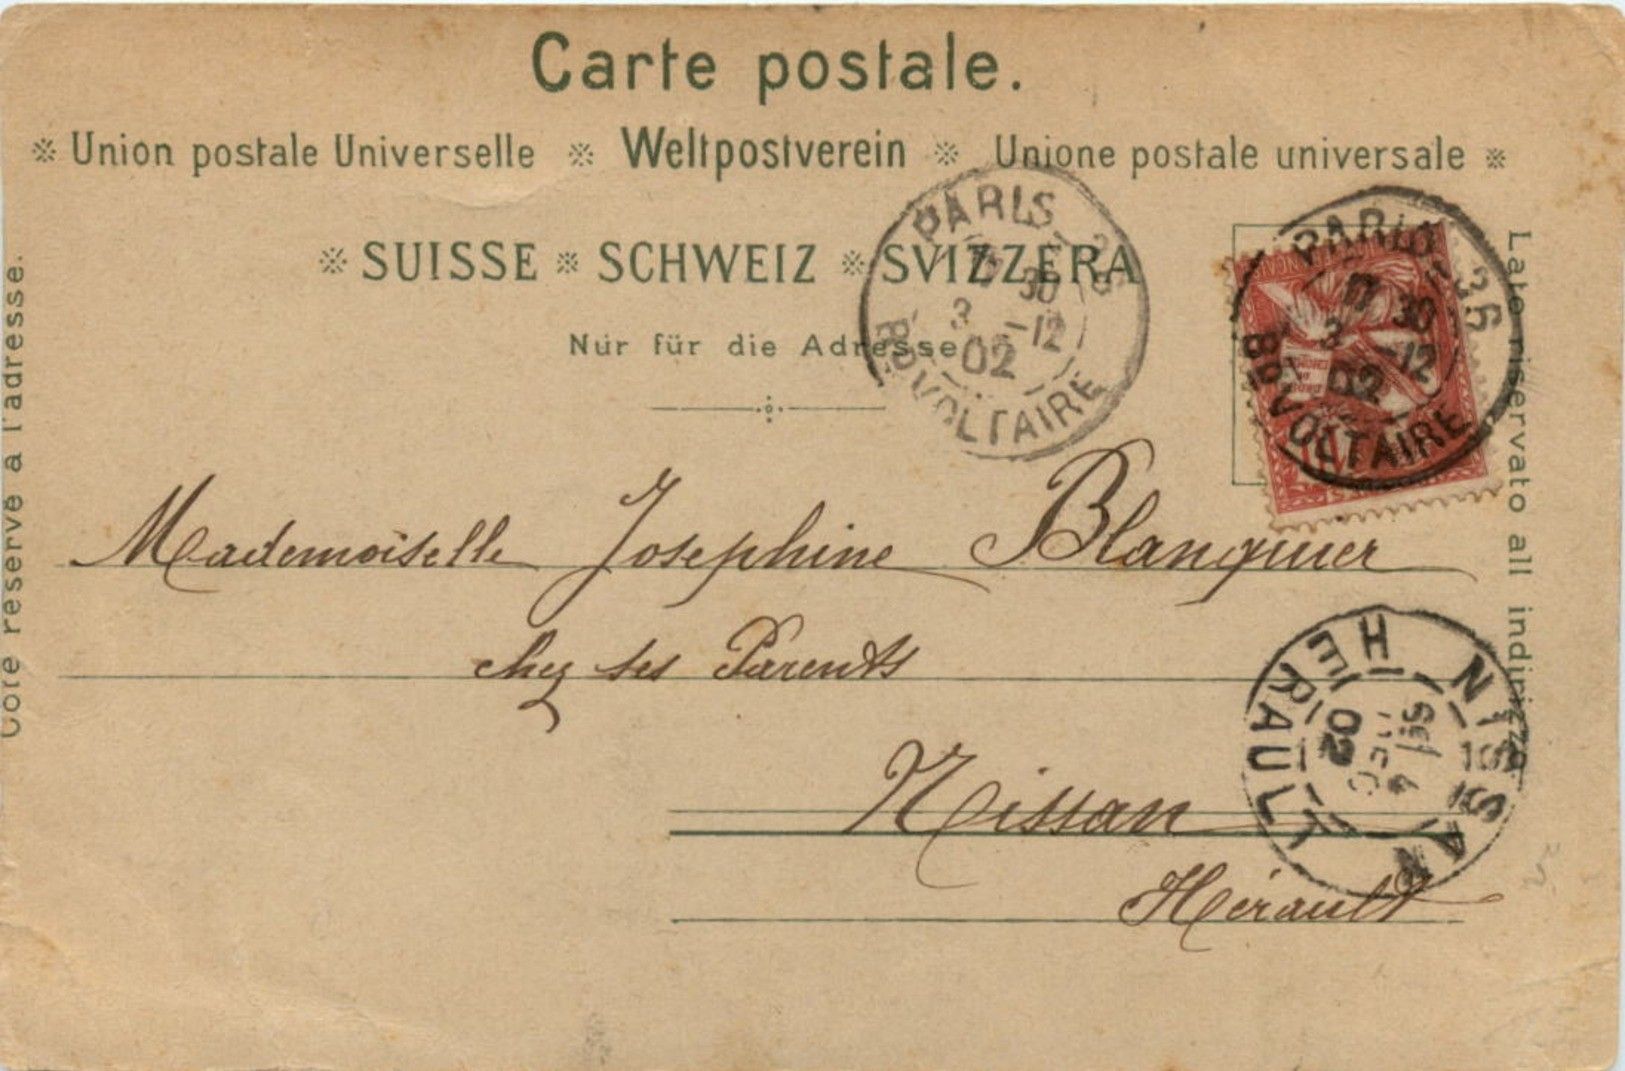 Carte postale.
Union postale Universelle Weltpostverein Unione postale universale
SUISSE SCHWEIZ SVIZZERA
Nur für die Adresse
Coté réservé à l'adresse.
Lato riservato all indirizzo.
PARIS - 36
17 30
3 -12
02
Bd VOLTAIRE
PARIS - 36
17 30
3 -12
02
Bd VOLTAIRE
Mademoiselle Josephine Blanquier
chez ses Parents
Nissan
Hérault
NISSAN
4
DEC
02
HERAULT